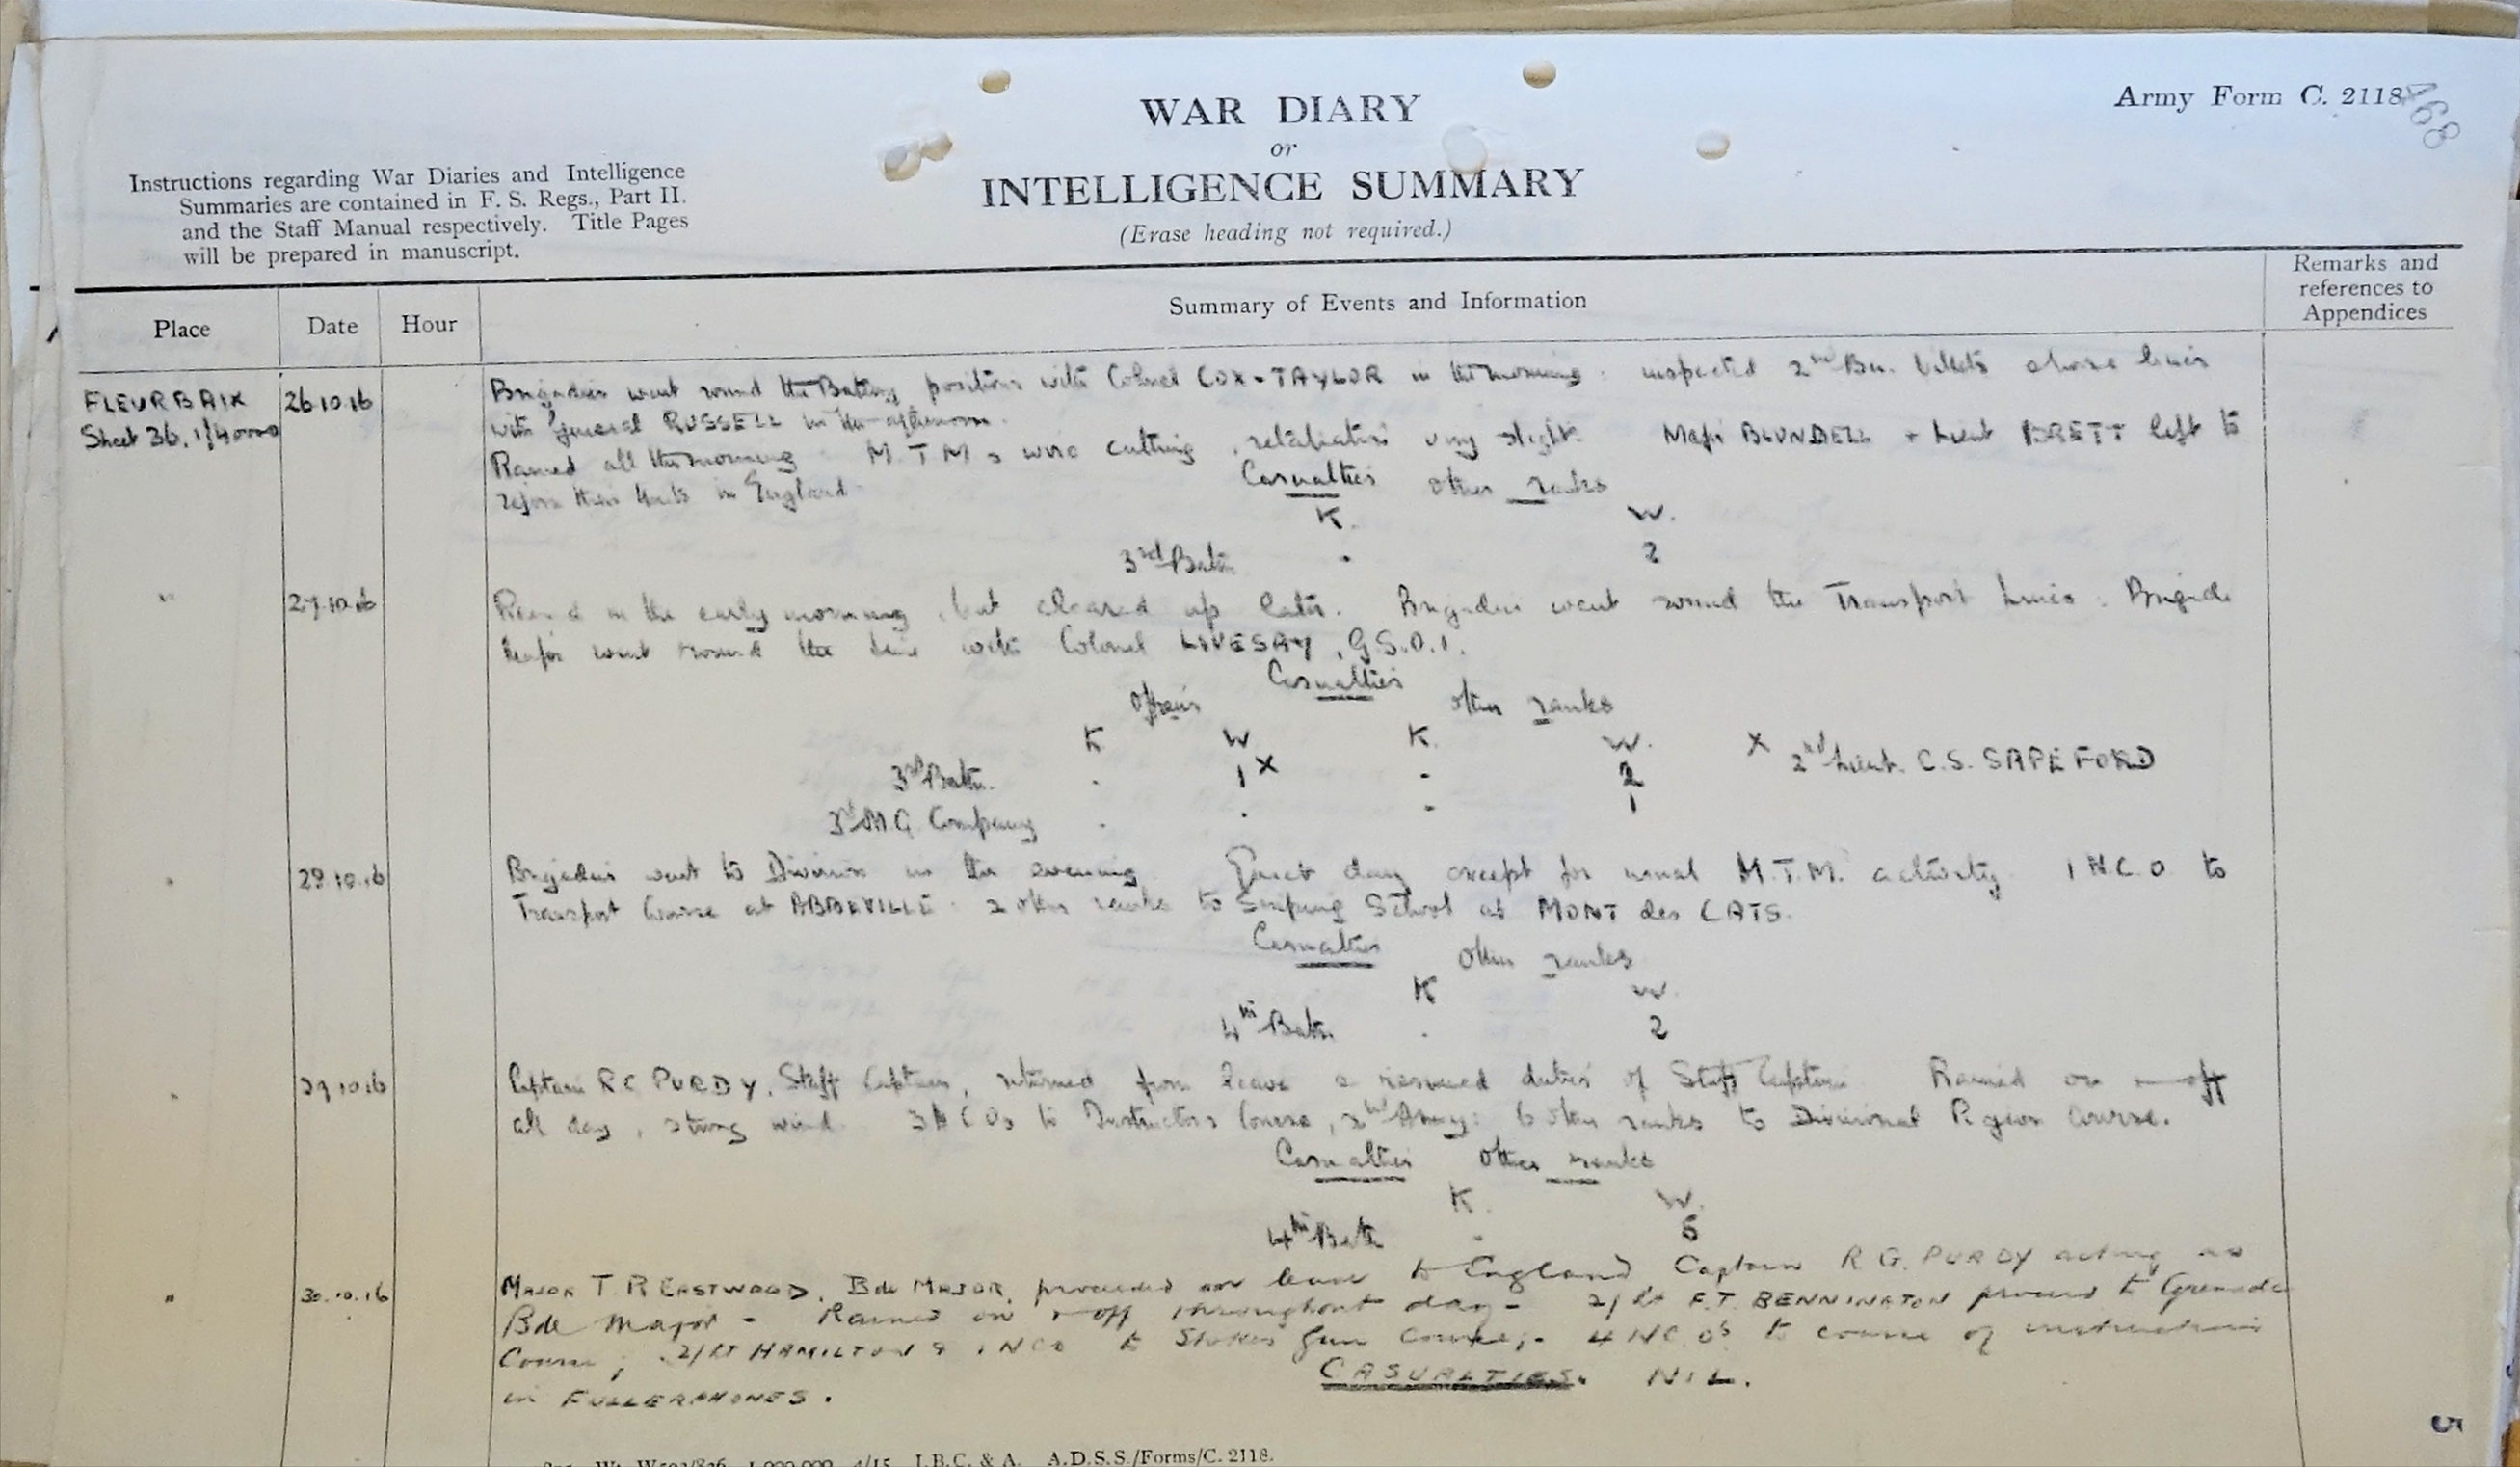 Army Form C. 2118
468
WAR DIARY
or
INTELLIGENCE SUMMARY
(Erase heading not required.)
Instructions regarding War Diaries and Intelligence
Summaries are contained in F. S. Regs., Part II.
and the Staff Manual respectively. Title Pages
will be prepared in manuscript.
Place Date Hour Summary of Events and Information Remarks and
references to
Appendices
FLEURBAIX 26.10.16 Brigadier went round the Battery positions with Colonel COX-TAYLOR in the morning: inspected 2nd Bn. billets & horse lines
Sheet 36. 1/40000 with General RUSSELL in the afternoon.
Rained all the morning: M.T.M.s wire cutting, retaliation very slight. Major BLUNDELL + Lieut BRETT left to
rejoin their Units in England.
Casualties other ranks
K. W.
3rd Battn. . 2
" 27.10.16 Rained in the early morning, but cleared up later. Brigadier went round the Transport Lines: Brigade
Major went round the Line with Colonel LIVESAY, G.S.O.1.
Casualties
Officers other ranks
K W K. W.
3rd Battn. . 1 X - 2 X 2nd Lieut. C.S. SAPEFORD
3rd M.G. Company . . - 1
" 28.10.16 Brigadier went to Division in the evening. Quiet day except for usual M.T.M. activity. 1 N.C.O to
Transport Course at ABBEVILLE. 2 other ranks to Sniping School at MONT des CATS.
Casualties other ranks
K W
4th Battn. . 2
" 29.10.16 Captain R C PURDY, Staff Captain, returned from leave & resumed duties of Staff Captain. Rained on & off
all day, strong wind. 3 N C Os to Instructors Course, 2nd Army: 6 other ranks to Divisional Pigeon Course.
Casualties other ranks
K. W.
4th Battn . 5
" 30.10.16 MAJOR T R EASTWOOD, Bde MAJOR, proceeded on leave to England Captain R.G. PURDY acting as
Bde Major - Rained on & off throughout day - 2/Lt F.T. BENNINGTON proceeds to Grenade
Course; 2/LT HAMILTON & 1 NCO to Stokes Gun Course;- 4 NC.Os to course of instruction
in FULLERPHONES.
CASUALTIES. NIL.
5
1,000,000 4/15 J.B.C. & A. A.D.S.S./Forms/C. 2118.